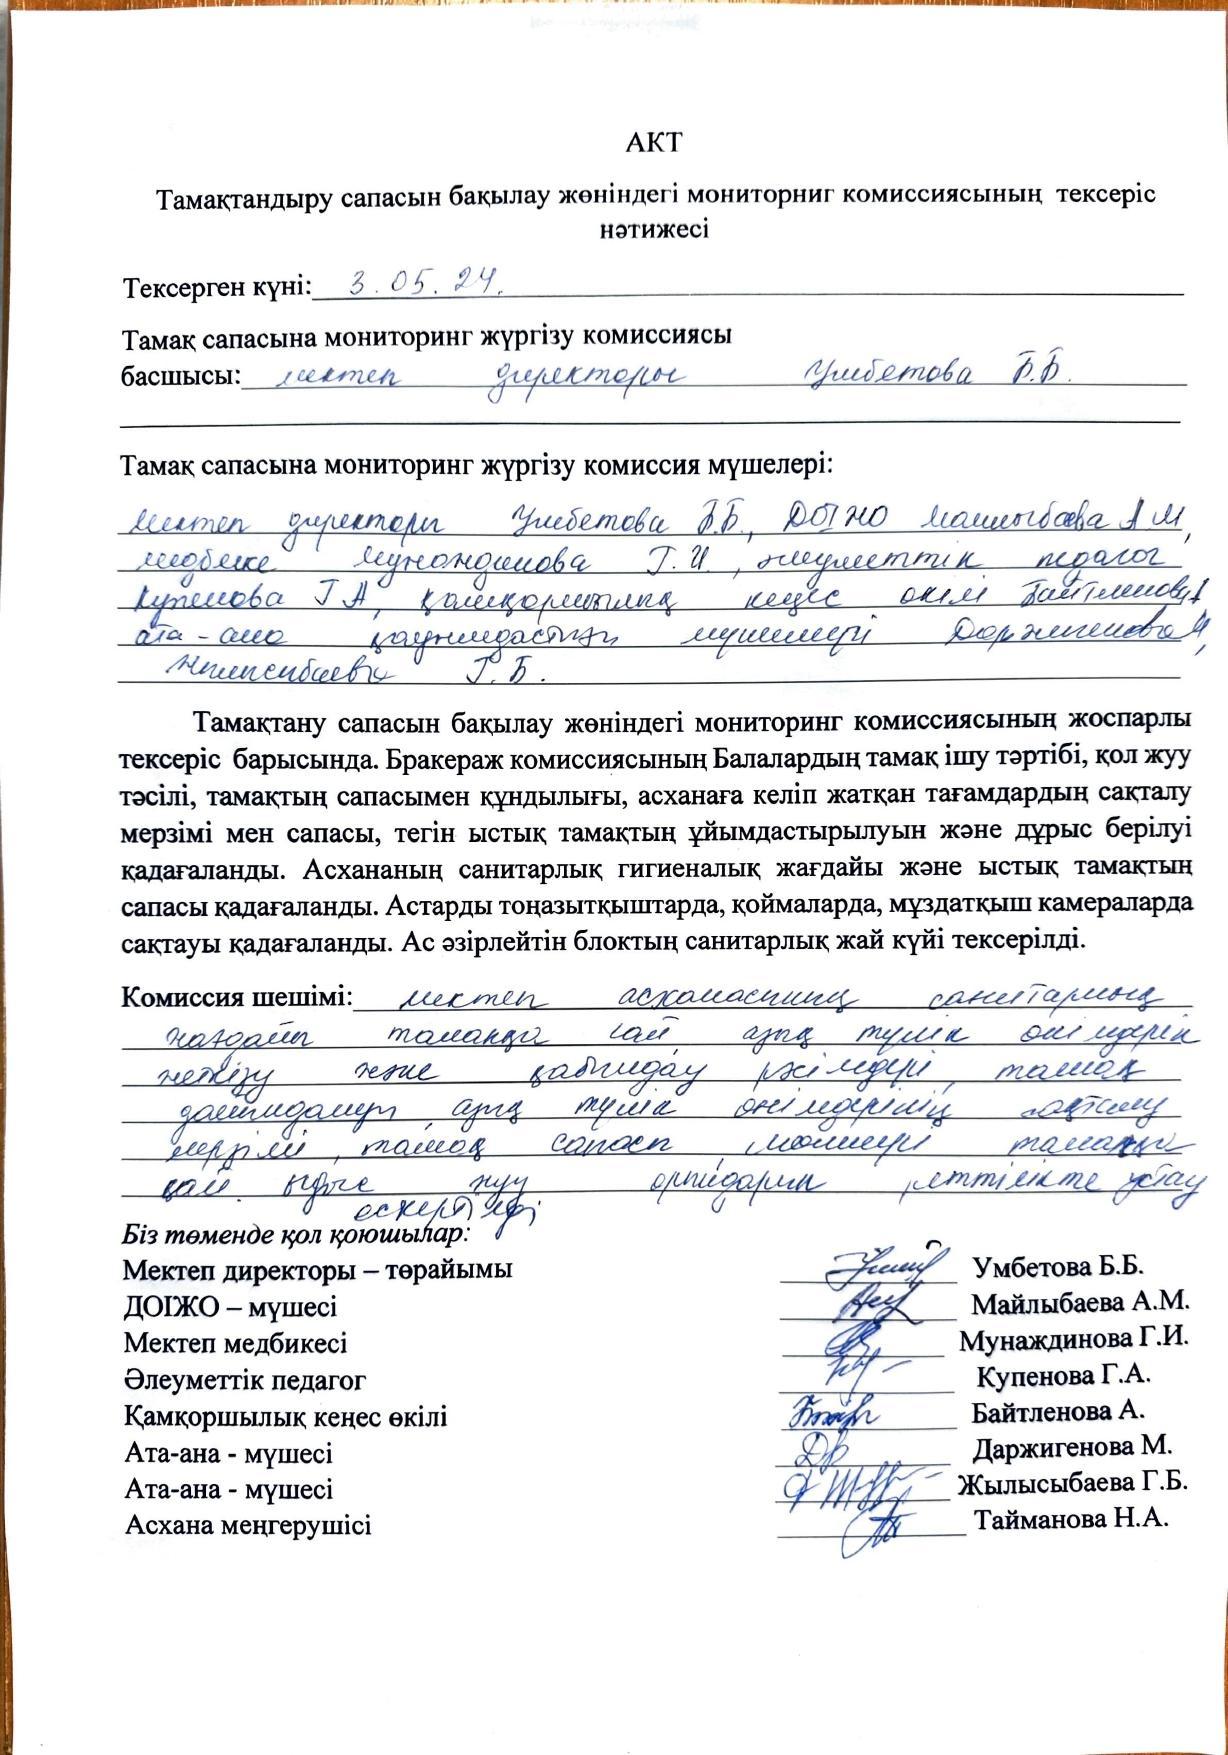 АКТ
Тамақтандыру сапасын бақылау жөніндегі мониторниг комиссиясының тексеріс
нәтижесі
Тексерген күні: 3.05.24.
Тамақ сапасына мониторинг жүргізу комиссиясы
басшысы: мектеп директоры Умбетова Б.Б.
Тамақ сапасына мониторинг жүргізу комиссия мүшелері:
мектеп директоры Умбетова Б.Б., ДОІЖО Майлыбаева А М,
медбике Мунаждинова Г.И., әлеуметтік педагог
Купенова Г А, қамқоршылық кеңес өкілі Байтленова А
ата-ана қауымдастығы мүшелері Даржигенова М,
Жылысыбаева Г.Б.
Тамақтану сапасын бақылау жөніндегі мониторинг комиссиясының жоспарлы
тексеріс барысында. Бракераж комиссиясының Балалардың тамақ ішу тәртібі, қол жуу
тәсілі, тамақтың сапасымен құндылығы, асханаға келіп жатқан тағамдардың сақталу
мерзімі мен сапасы, тегін ыстық тамақтың ұйымдастырылуын және дұрыс берілуі
қадағаланды. Асхананың санитарлық гигиеналық жағдайы және ыстық тамақтың
сапасы қадағаланды. Астарды тоңазытқыштарда, қоймаларда, мұздатқыш камераларда
сақтауы қадағаланды. Ас әзірлейтін блоктың санитарлық жай күйі тексерілді.
Комиссия шешімі: мектеп асханасының санитарлық
жағдайы талапқа сай азық түлік өнімдерін
жеткізу және қабылдау ережелері, тамақ
дайындалуы азық түлік өнімдерінің сақталу
мерзімі, тамақ сапасы, мөлшері талапқа
сай. ыдыс жуу орындарын реттілікте ұстау
ескертілді
Біз төменде қол қоюшылар:
Мектеп директоры – төрайымы Умбетова Б.Б.
ДОІЖО – мүшесі Майлыбаева А.М.
Мектеп медбикесі Мунаждинова Г.И.
Әлеуметтік педагог Купенова Г.А.
Қамқоршылық кеңес өкілі Байтленова А.
Ата-ана - мүшесі Даржигенова М.
Ата-ана - мүшесі Жылысыбаева Г.Б.
Асхана меңгерушісі Тайманова Н.А.